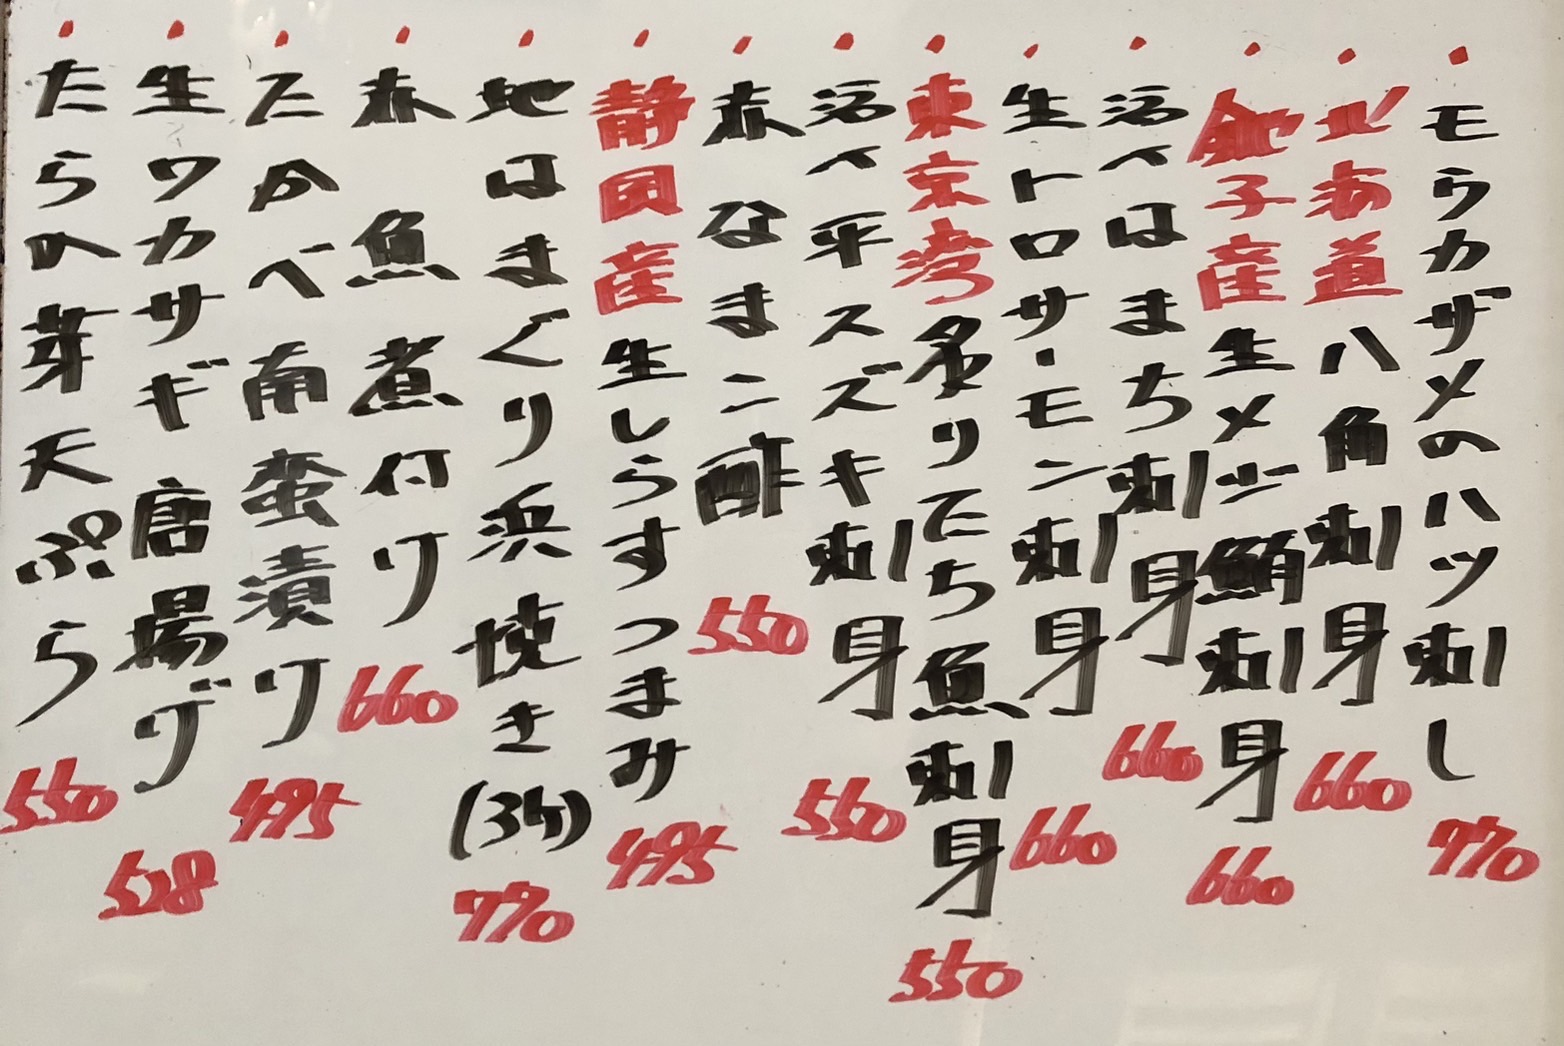 ・モウカザメのハツ刺し 770
・北海道 八角刺身 660
・銚子産 生メジ鮪刺身 660
・活〆はまち刺身 660
・生トロサーモン刺身 660
・東京湾 炙りたち魚刺身 550
・活〆平スズキ刺身 550
・赤なまこ酢 550
・静岡産 生しらすつまみ 495
・地はまぐり浜焼き(3ケ) 770
・赤魚煮付け 660
・たかべ南蛮漬け 495
・生ワカサギ唐揚げ 528
・たらの芽天ぷら 550